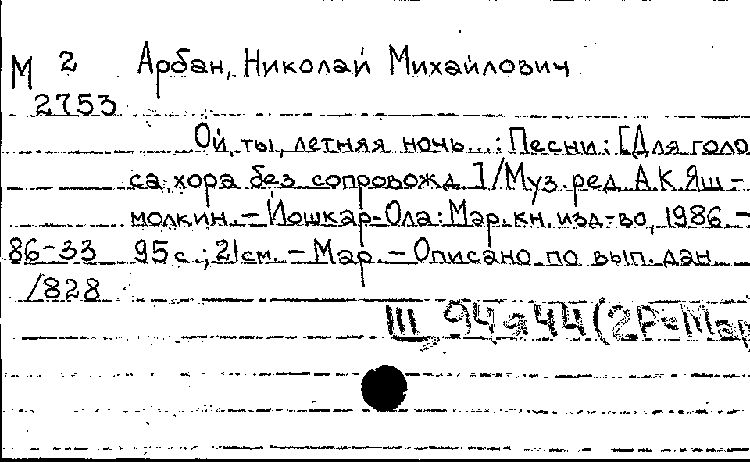 М 2 Арбан, Николай Михайлович
2753
Ой, ты, летняя ночь...: Песни: [Для голо
са, хора без сопровожд.] / Муз. ред. А.К. Яш-
молкин. – Йошкар-Ола: Мар. кн. изд-во, 1986. –
86-33 95 с.; 21 см. – Мар. – Описано по вып. дан.
/828
Щ 94 я 44 (2Р=Мар